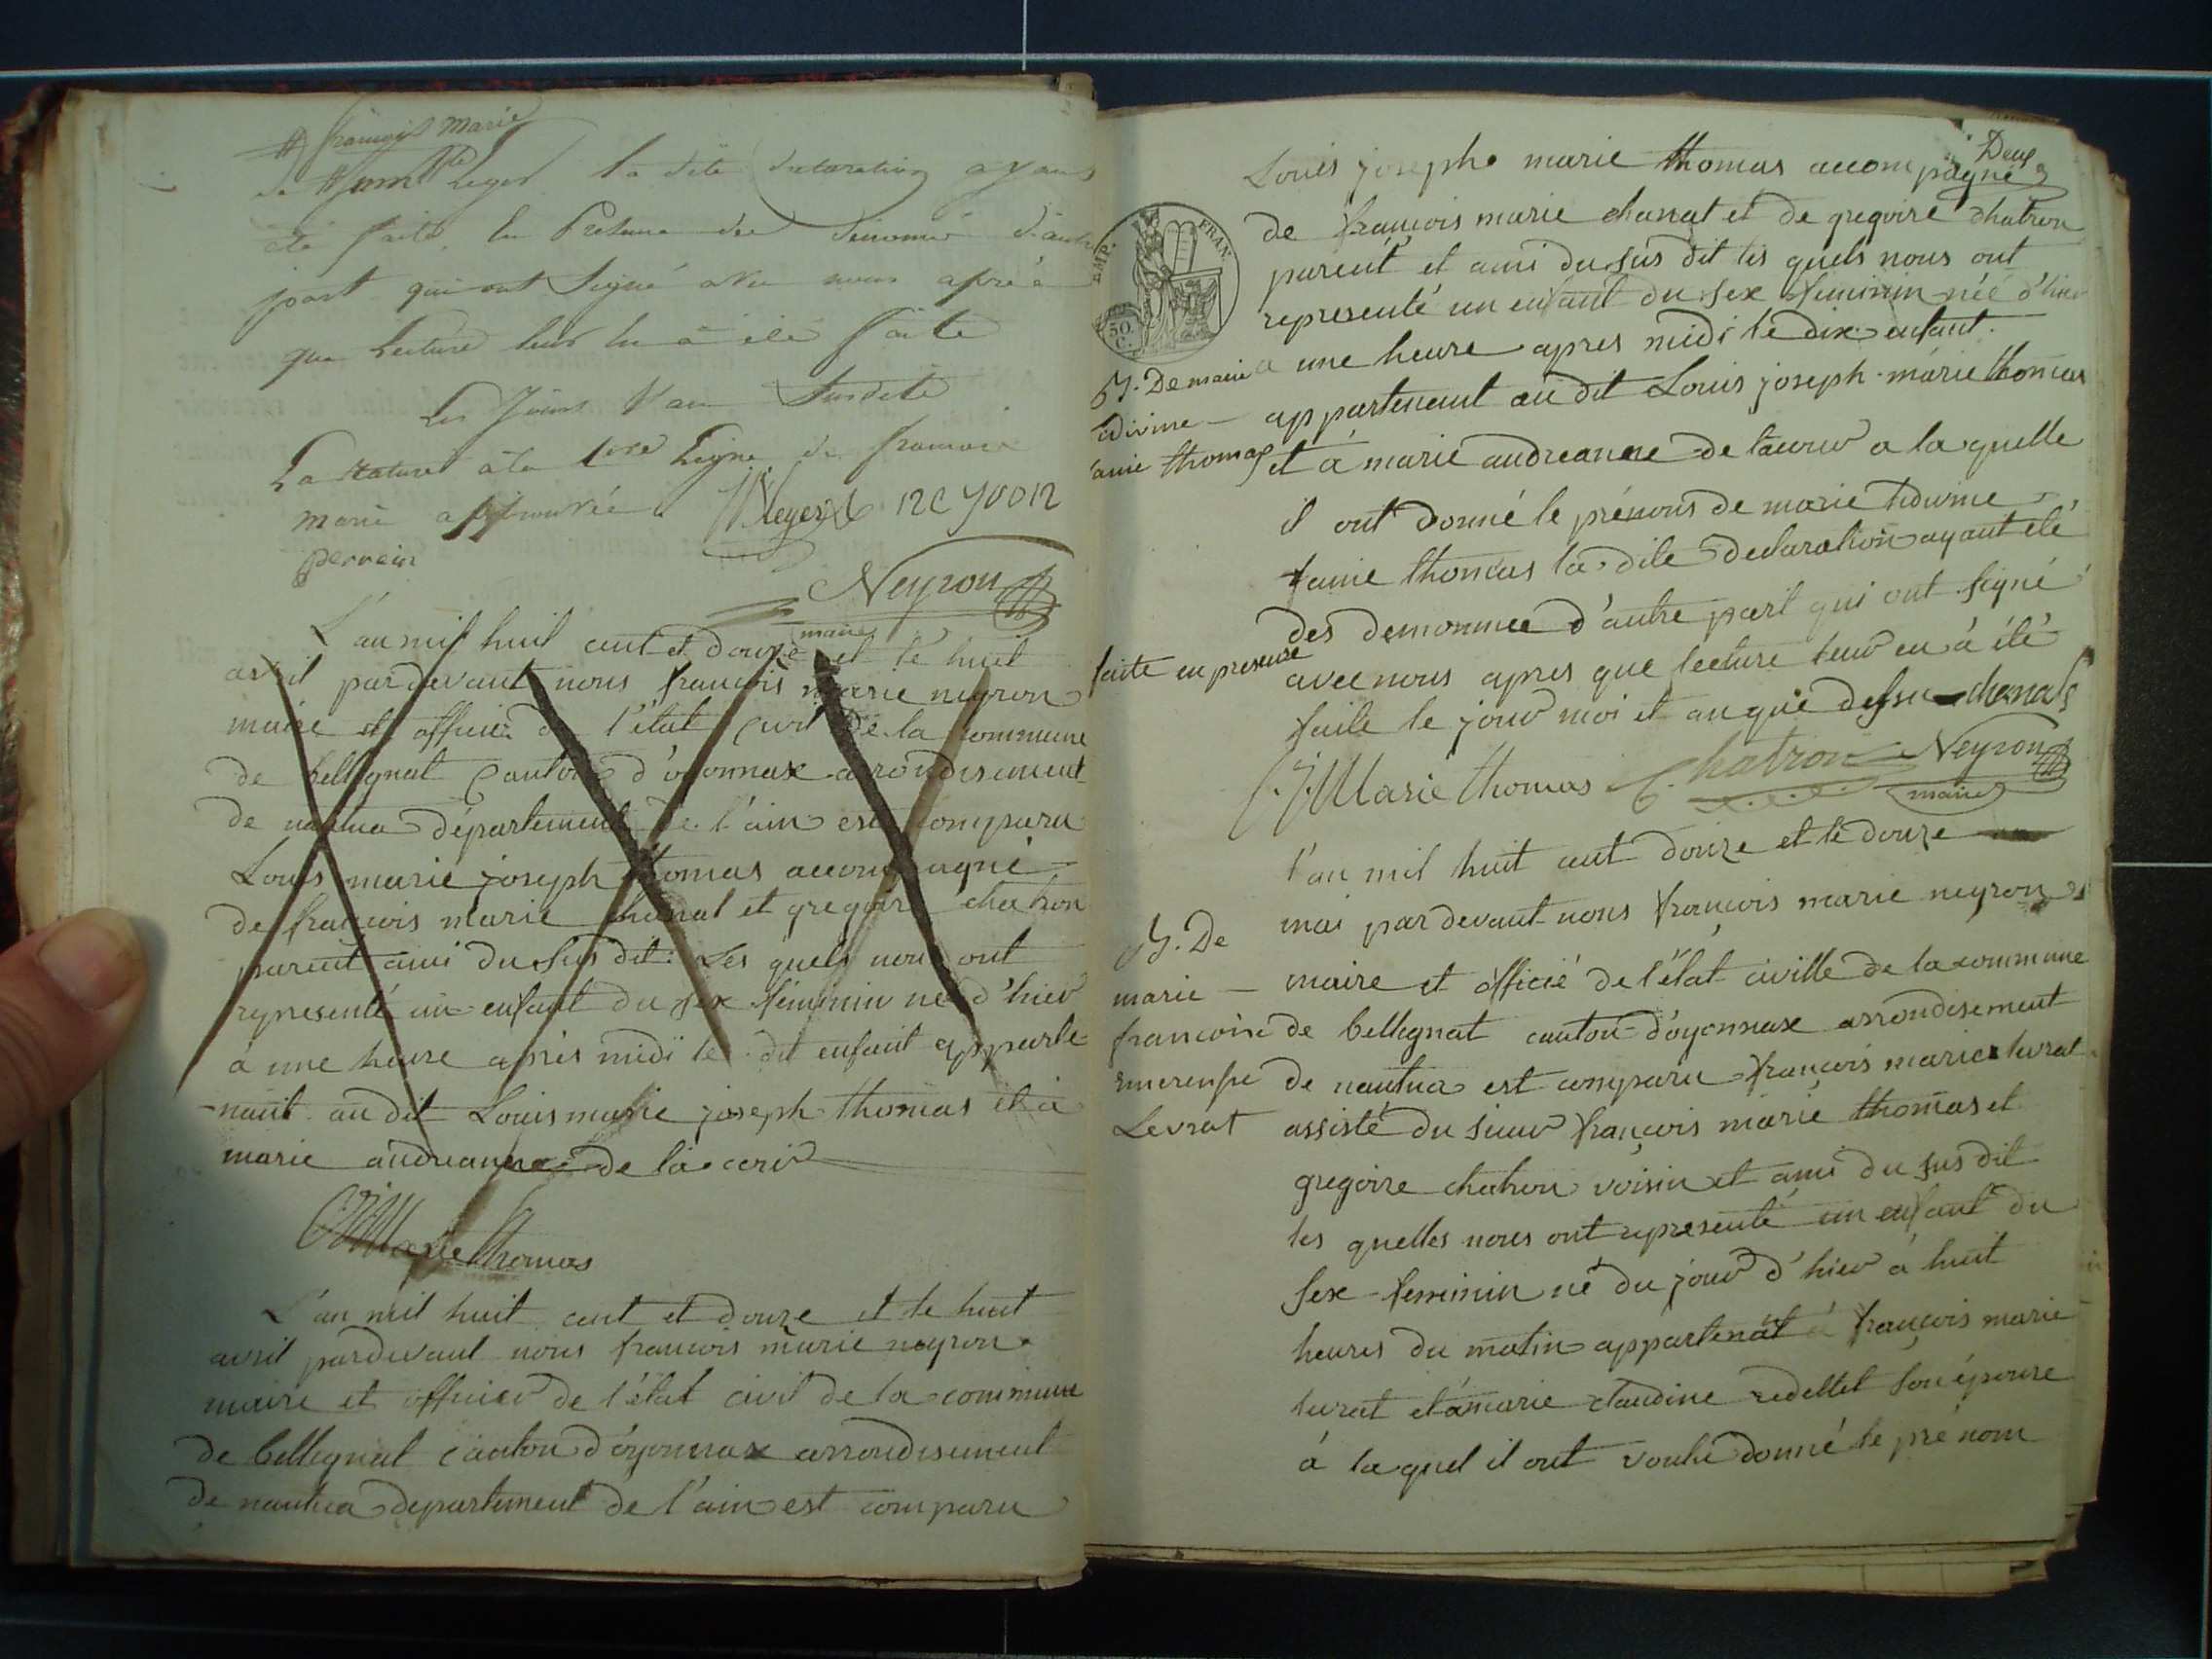 françois Marie
de leger la dite declaration ayant
été faite en Presence des denomé d'autre
part qui ont Signé avec nous après
que Lecture leur en a été faite
Les Jours & an Susdite
La Rature à la 1ere Ligne de francois
marie approuvée
perrein
Neyron
maire
L'an mil huit cent et douze et le huit
avril pardevant nous francois marie neyron
maire et officier de l'état civil de la commune
de bellegnat canton d'oyonnax arrondisement
de nantua département de l'ain est comparu
Louis marie joseph thomas accompagné
de francois marie chanal et gregoire chatron
parent ami du sus dit: Les quels nous ont
representé un enfant du sex féminin né d'hier
à une heure après midi le dit enfant apparte
-nant au dit Louis marie joseph thomas et à
marie andreanne de la
Marie thomas
L'an mil huit cent et douze et le huit
avril pardevant nous francois marie neyron
maire et officier de l'état civil de la commune
de bellegnat canton d'oyonnax arrondisement
de nantua departement de l'ain est comparu
Deux
Louis josephe marie thomas accompagné
de françois marie chanal et de gregoire chatron
parent et ami du sus dit les quels nous ont
representé un enfant du sex feminin née d'hier
a une heure apres midi le dix enfant
appartenant au dit Louis joseph marie thomas
et à marie andreanne de a la quelle
il ont donné le prénoms de marie
fanie thomas la dite declaration ayant été
des denommee d'autre part qui ont signé
avec nous apres que lecture leur en à été
faite le jour moi et an que dessu chanal
J. Marie thomas Chatron Neyron
maire
TIMP. FRAN.
50.
C.
N. De marie
thomas
faite en presence
l'an mil huit cent douze et le douze
mai par devant nous françois marie neyron
maire et officié de l'état civille de la commune
de bellegnat canton d'oyonnax arrondisement
de nantua est comparu françois marie levrat
assisté du sieur françois marie thomas et
gregoire chatron voisin et ami du sus dit
les quelles nous ont representé un enfant du
sex feminin né du jour d'hier à huit
heures du matin appartenat à françois marie
levrat et à marie claudine redettet son épouse
à la quel il ont voulu donné le pré nom
N. De
marie
francoise
Levrat